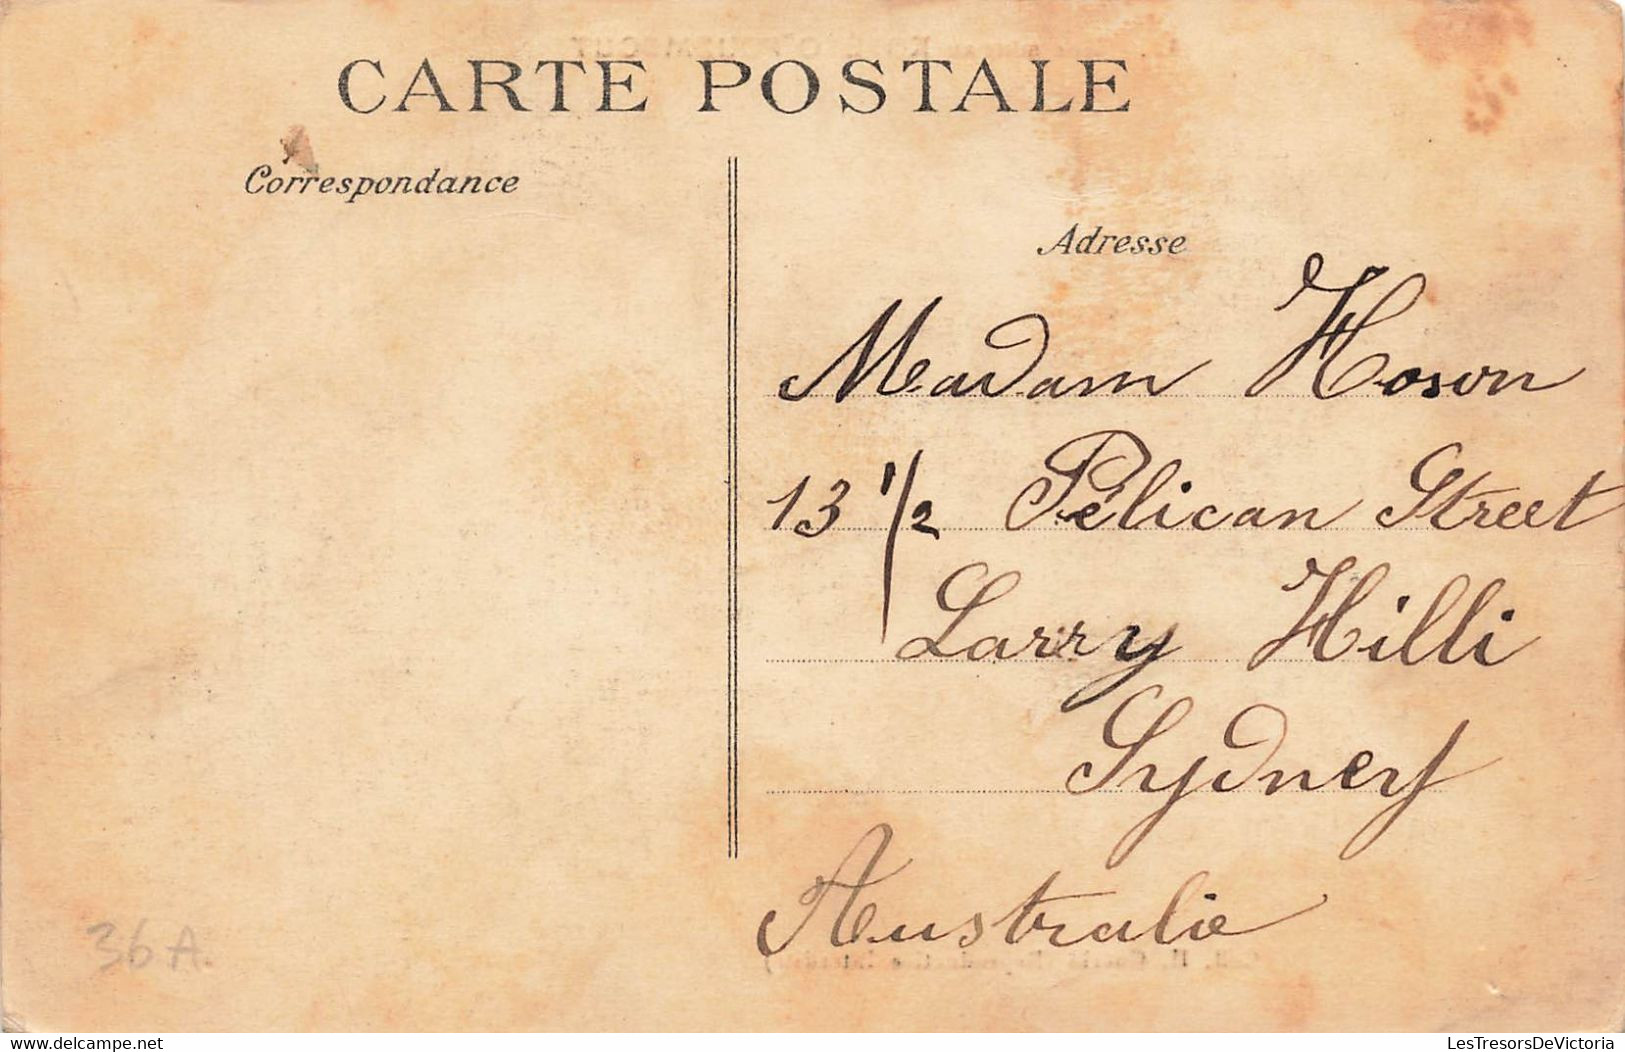 CARTE POSTALE
Correspondance
Adresse
Madam Hoson
13 1/2 Pélican Street
Larry Hilli
Sydney
Australie
36 A.
LesTresorsDeVictoria